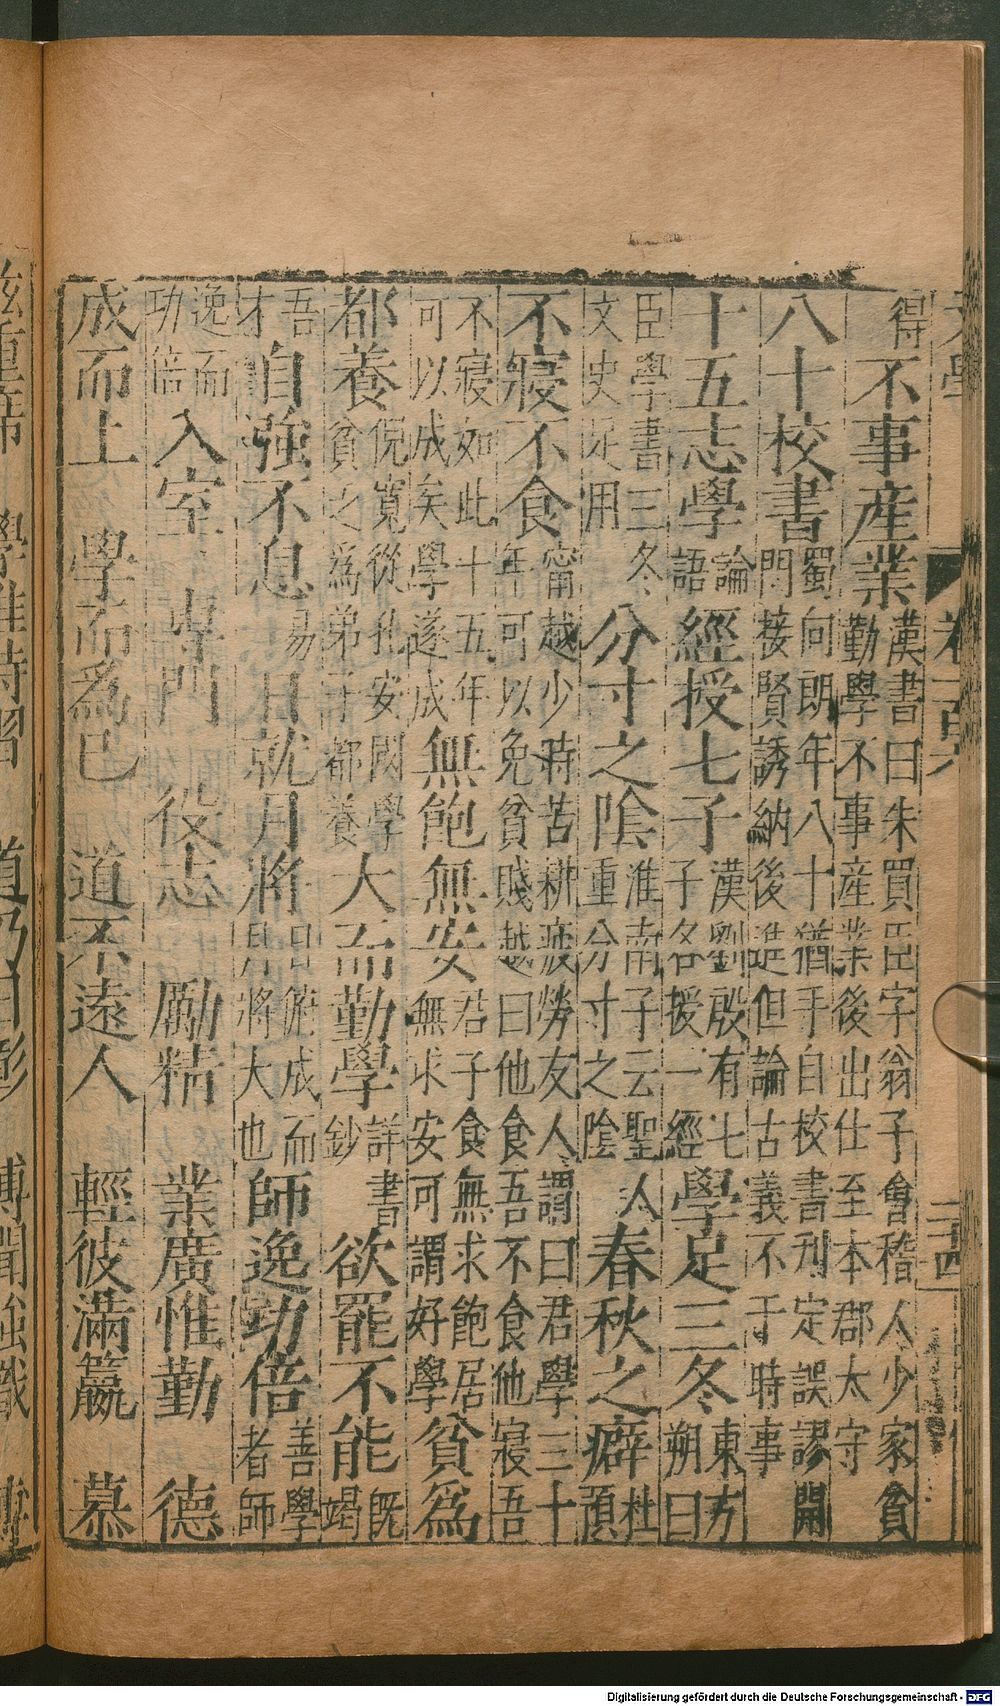 得不事產業漢書曰朱買臣字翁子會稽人少家貧勤學不事產業後出仕至本郡太守
八十校書蜀向朗年八十猶手自校書刊定誤謬開門接賢誘納後進但論古義不于時事
十五志學論語經授七子漢劉殷有七子各授一經學足三冬東方朔曰
臣學書三冬文史足用分寸之陰淮南子云聖人重分寸之陰春秋之癖杜預
不寢不食甯越少時苦耕疲勞友人謂曰君學三十年可以免貧賤越曰他食吾不食他寢吾
不寢如此十五年可以成矣學遂成無飽無安君子食無求飽居無求安可謂好學貧為
都養倪寬從孔安閎學貧之為弟子都養大而勤學詳書鈔欲罷不能既竭
吾才自強不息易日就月將日俯成而月將大也師逸功倍善學者師
逸而功倍入室 專門 役志 勵精 業廣惟勤 德
成而上 學而為已 道不遠人 輕彼滿籯 慕
重席 學惟時習 道乃日彰 博聞強識
Digitalisierung gefördert durch die Deutsche Forschungsgemeinschaft - DFG